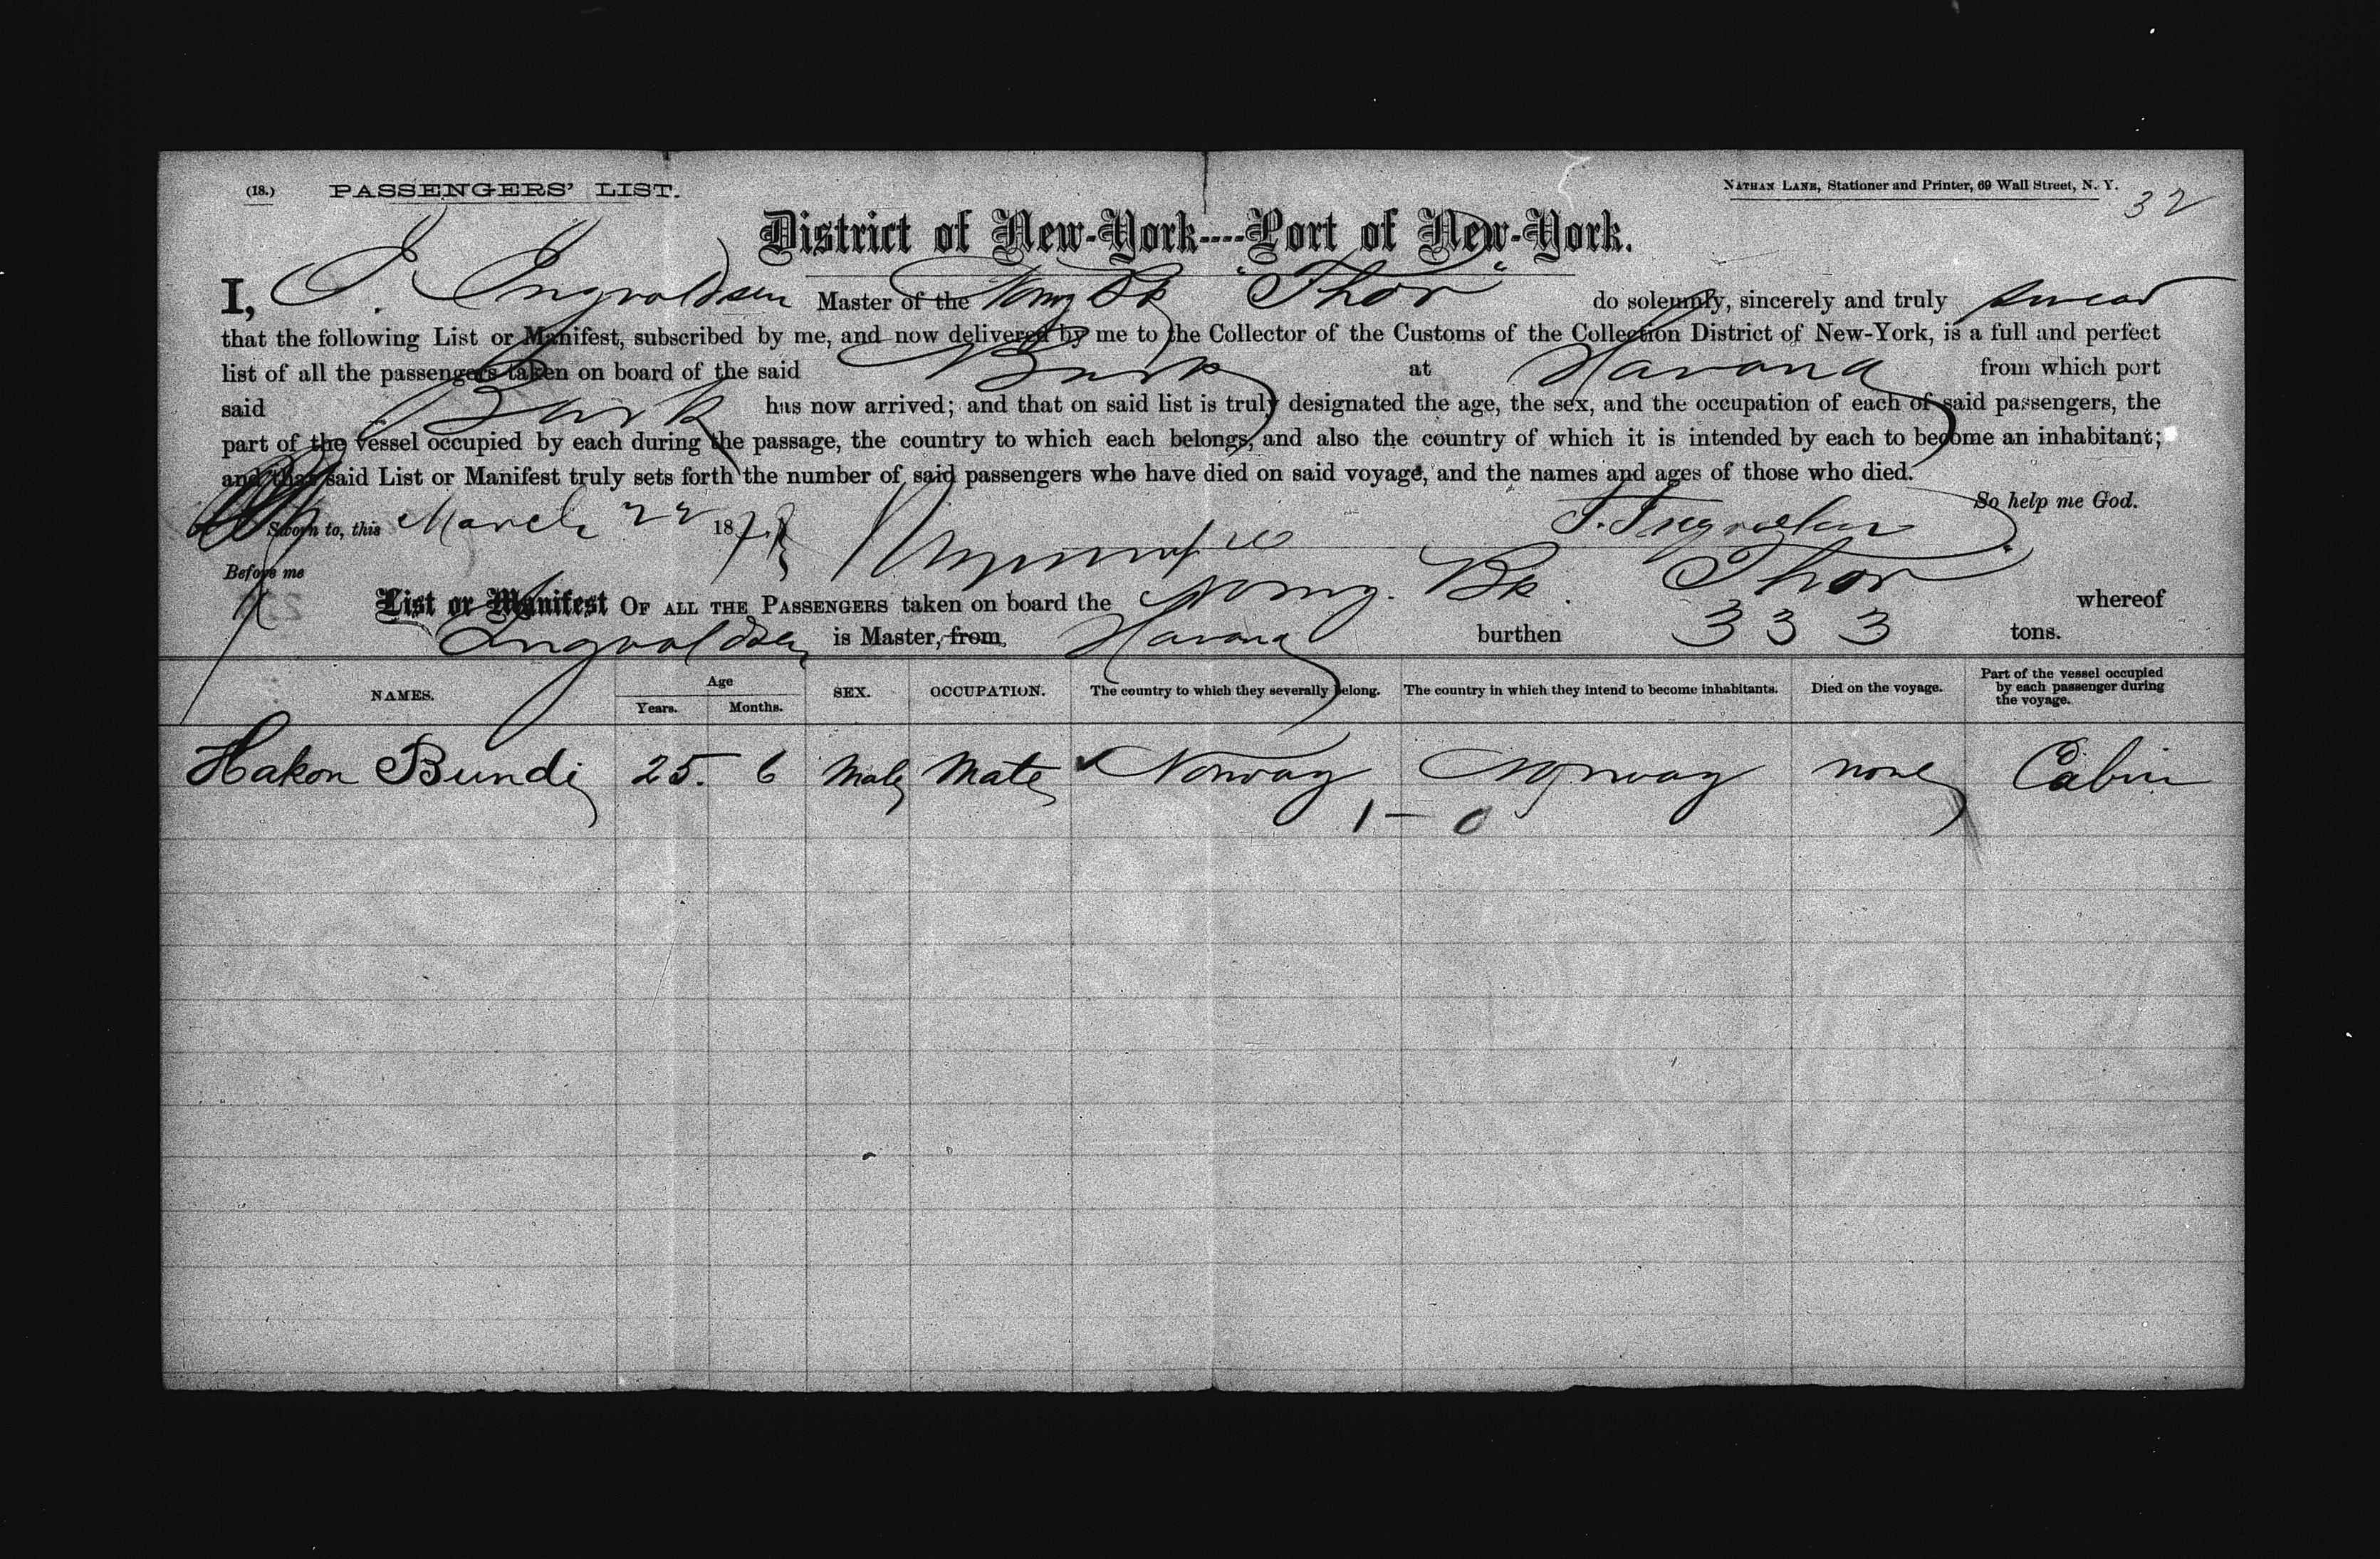 (18.) PASSENGERS' LIST. NATHAN LANE, Stationer and Printer, 69 Wall Street, N. Y.
32
District of New-York----Port of New-York.
I, Ingvoldsen Master of the Norwg Bk "Thor" do solemnly, sincerely and truly swear
that the following List or Manifest, subscribed by me, and now delivered by me to the Collector of the Customs of the Collection District of New-York, is a full and perfect
list of all the passengers taken on board of the said Bark at Havana from which port
said Bark has now arrived; and that on said list is truly designated the age, the sex, and the occupation of each of said passengers, the
part of the vessel occupied by each during the passage, the country to which each belongs, and also the country of which it is intended by each to become an inhabitant;
and that said List or Manifest truly sets forth the number of said passengers who have died on said voyage, and the names and ages of those who died.
So help me God.
Sworn to, this March 22 187
Before me
List or Manifest OF ALL THE PASSENGERS taken on board the Norwg. Bk. Thor whereof
Ingvoldsen is Master, from, Havana burthen 333 tons.
NAMES. Age Years. Months. SEX. OCCUPATION. The country to which they severally belong. The country in which they intend to become inhabitants. Died on the voyage. Part of the vessel occupied by each passenger during the voyage.
Hakon Bundi 25. 6 Male Mate Norway Norway none Cabin
1 - 0